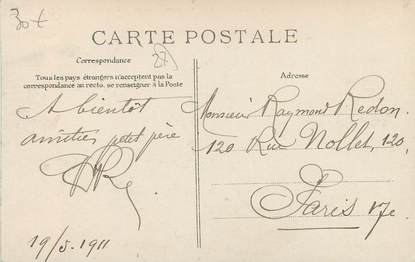 30 t
CARTE POSTALE
Correspondance
27
Tous les pays étrangers n'acceptent pas la
correspondance au recto, se renseigner à la Poste
A bientôt
amitiés petit père
19/5. 1911
Adresse
Monsieur Raymond Redon.
120 Rue Nollet, 120,
Paris 17e